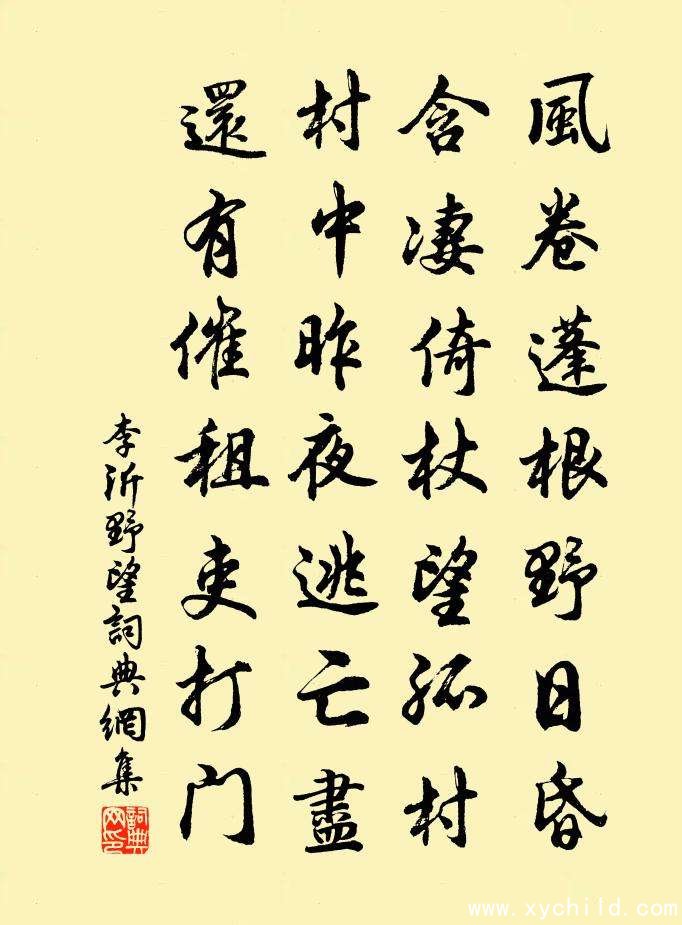 風卷蓬根野日昏
含淒倚杖望孤村
村中昨夜逃亡盡
還有催租吏打門
李沂野望詞典網集
詞典網印
www.xychild.com